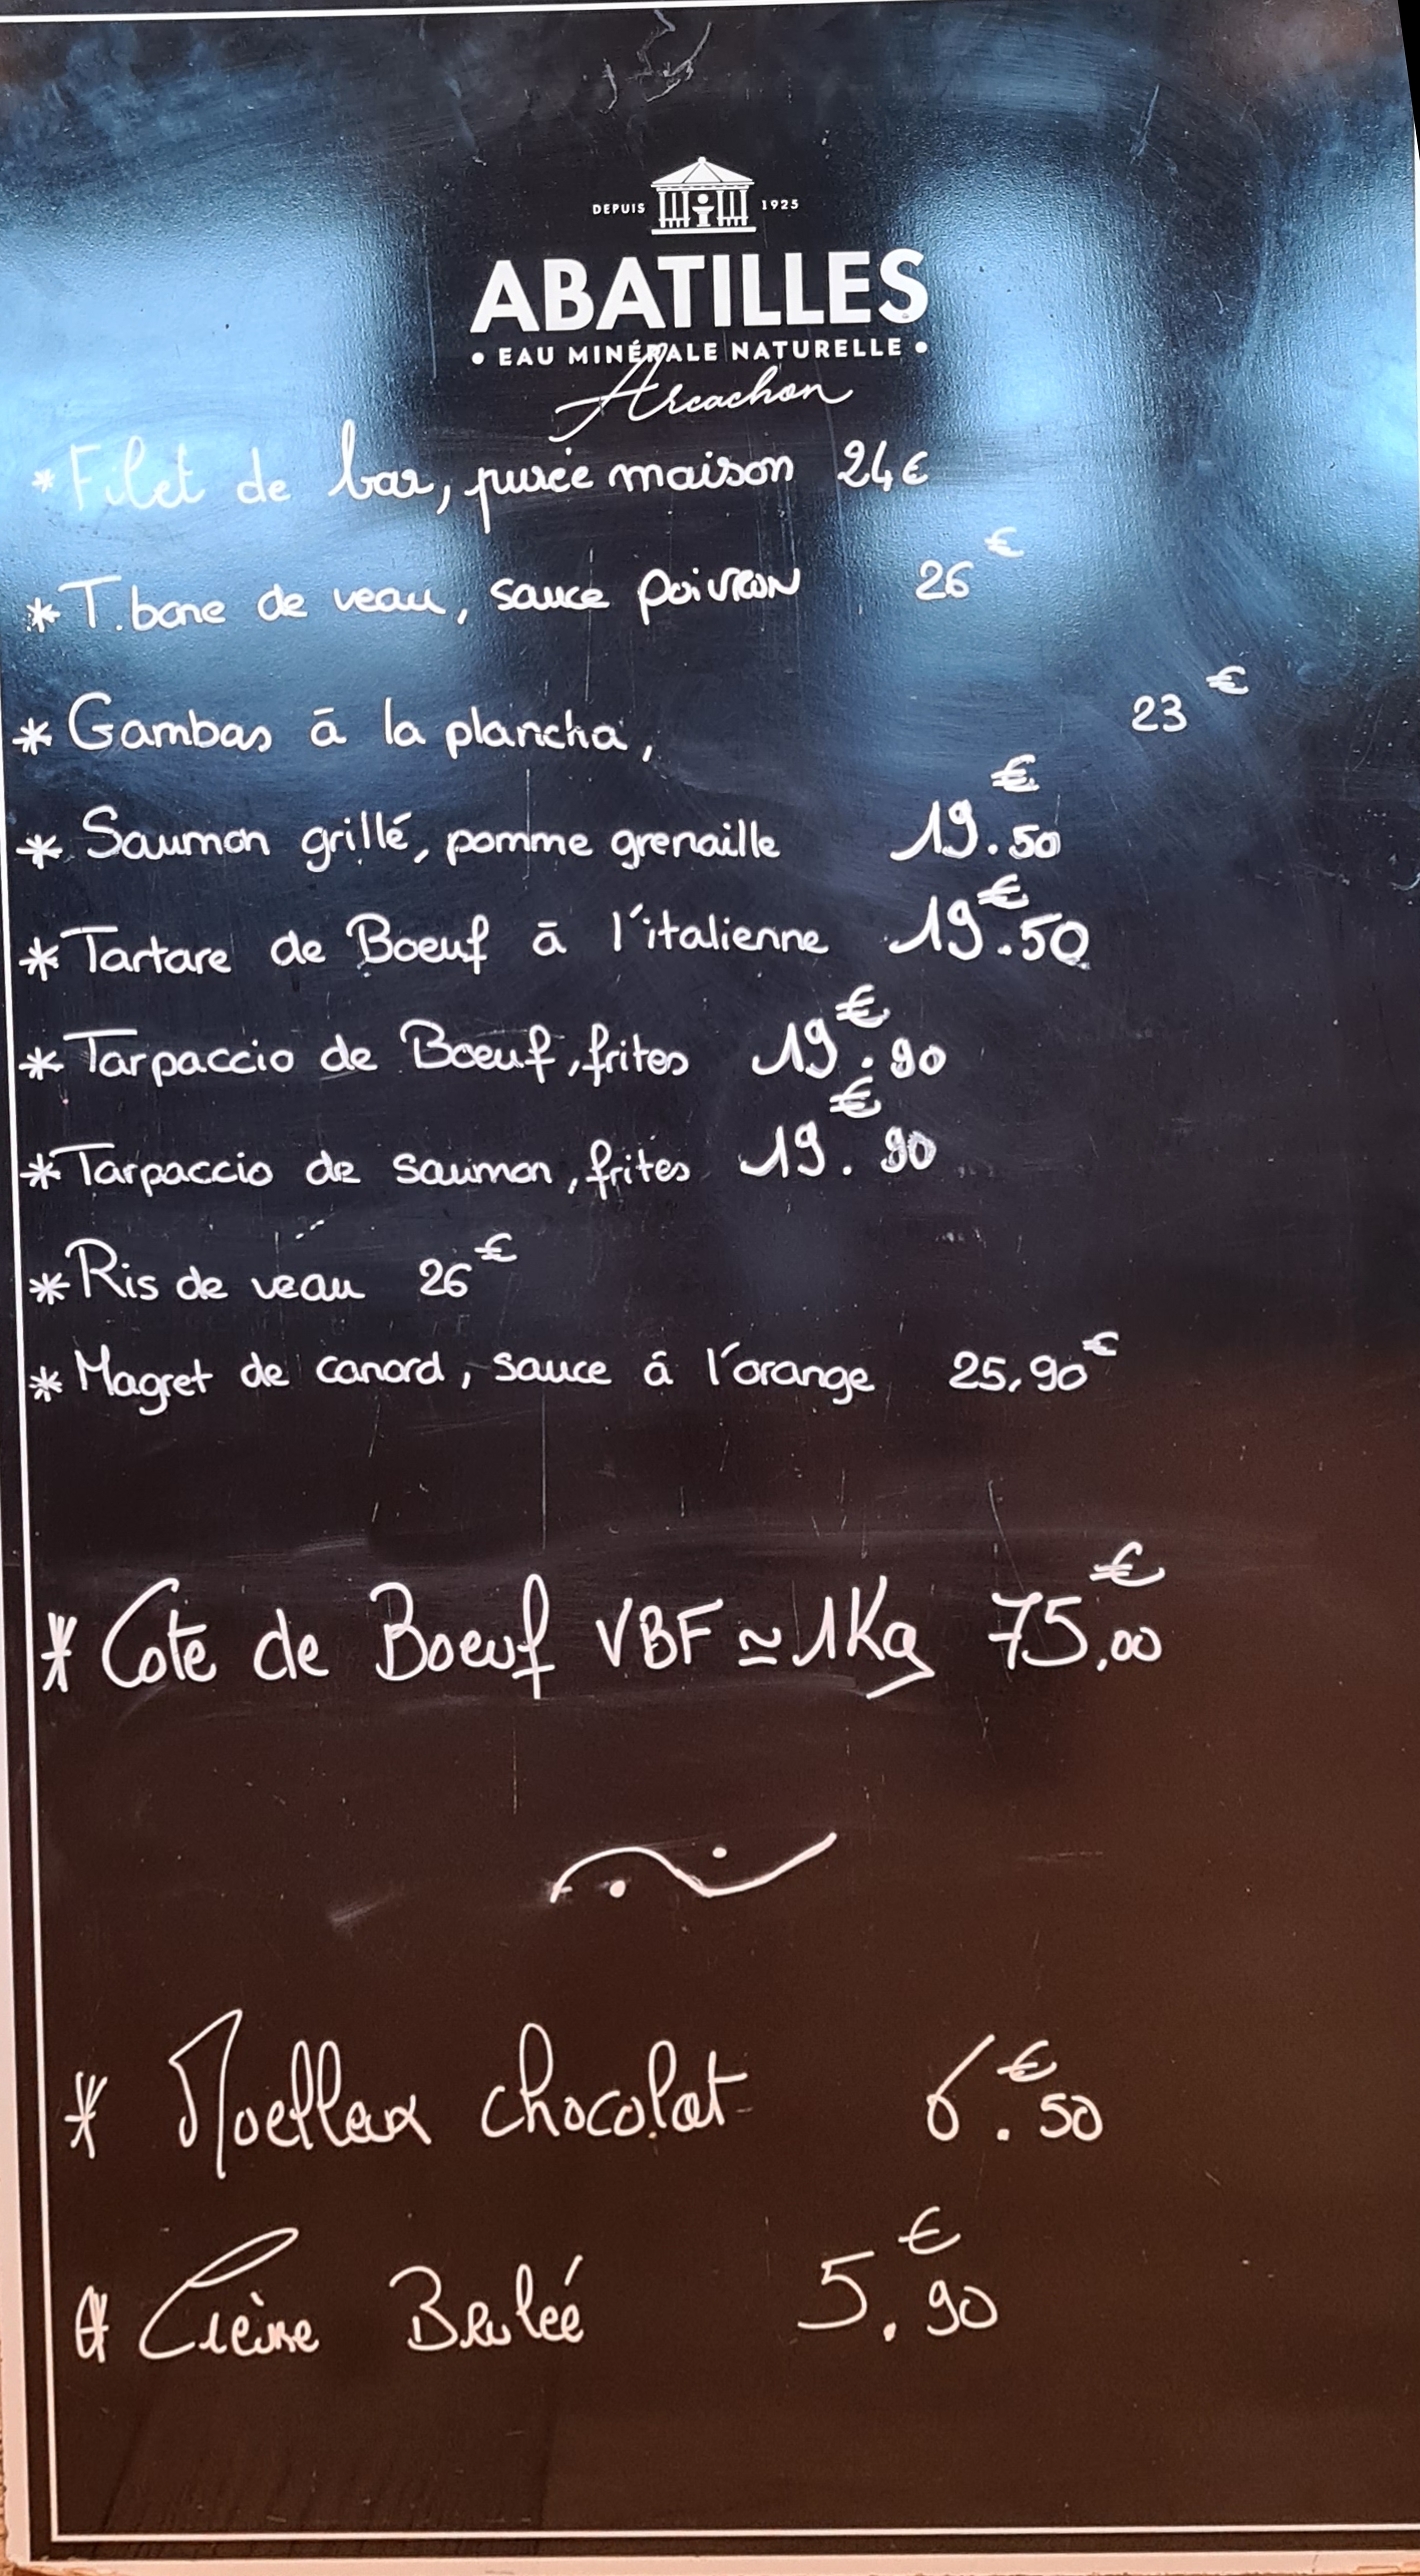 DEPUIS 1925
ABATILLES
• EAU MINÉRALE NATURELLE •
Arcachon
* Filet de bar, purée maison 24€
* T.bone de veau, sauce poivron 26€
* Gambas à la plancha, 23€
* Saumon grillé, pomme grenaille 19€.50
* Tartare de Boeuf à l'italienne 19€.50
* Tarpaccio de Boeuf, frites 19€.90
* Tarpaccio de saumon, frites 19€.90
* Ris de veau 26€
* Magret de canard, sauce à l'orange 25,90€
* Cote de Boeuf VBF ≃ 1Kg 75,00€
* Moelleux chocolat 6€.50
* Crème Brulée 5.€90